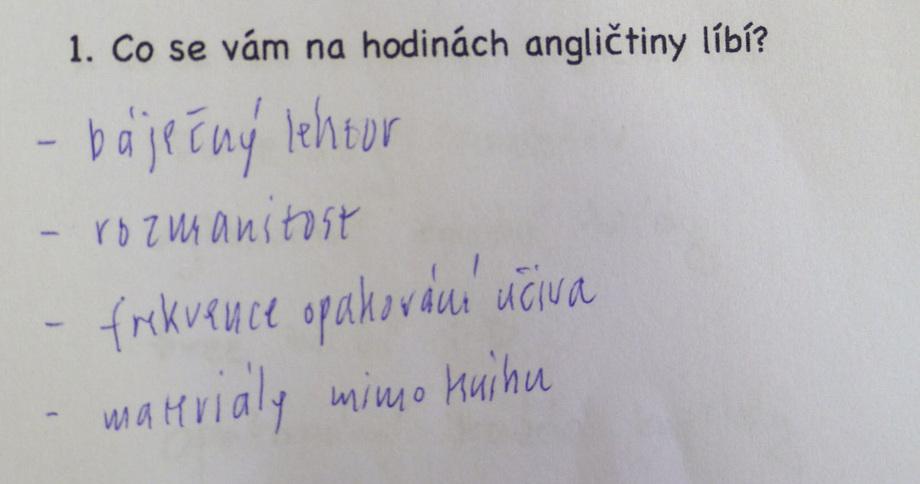 1. Co se vám na hodinách angličtiny líbí?
- báječný lektor
- rozmanitost
- frekvence opakování učiva
- materiály mimo knihu